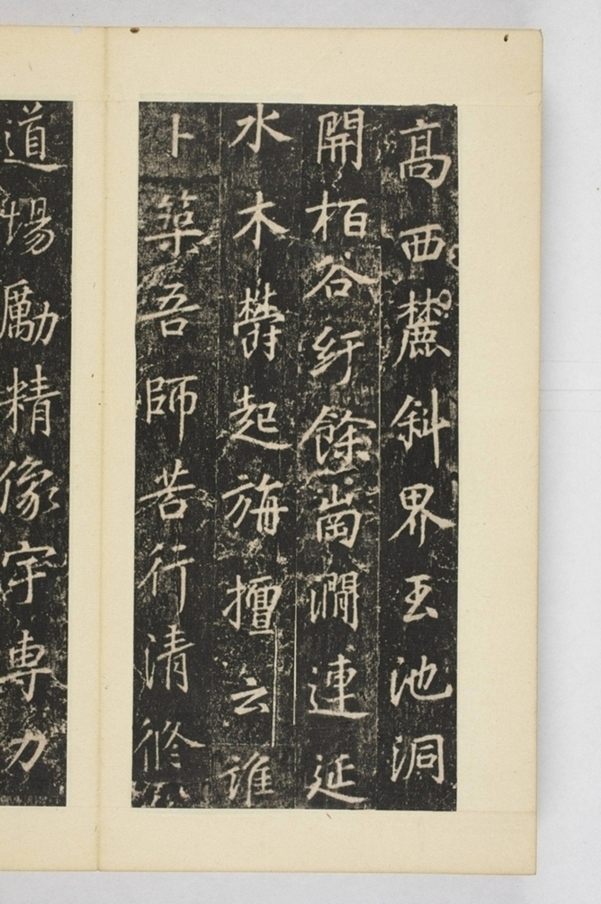 高西麓斜界玉池洞
開栢谷紆餘崗澗連延
水木欝起旃檀云誰
卜築吾師苦行清修
道場勵精像宇專力